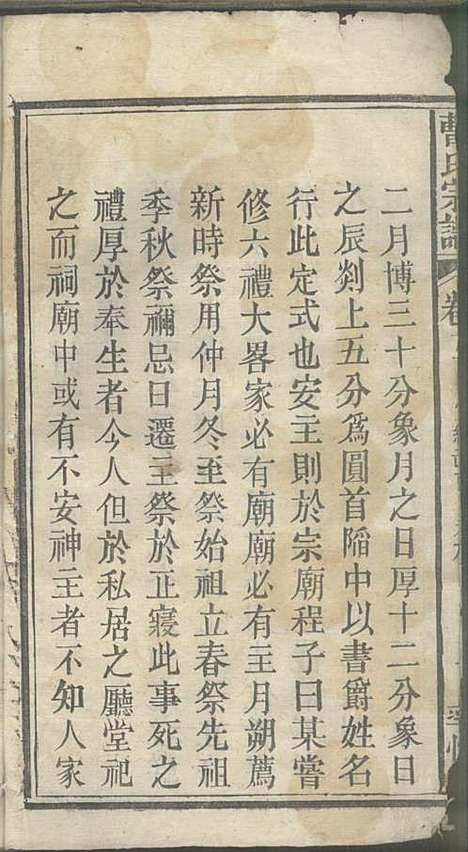 二月博三十分象月之日厚十二分象日
之辰剡上五分爲圓首陷中以書爵姓名
行此定式也安主則於宗廟程子曰某嘗
修六禮大畧家必有廟廟必有主月朔薦
新時祭用仲月冬至祭始祖立春祭先祖
季秋祭禰忌日遷主祭於正寢此事死之
禮厚於奉生者今人但於私居之廳堂祀
之而祠廟中或有不安神主者不知人家
曹氏宗譜 卷